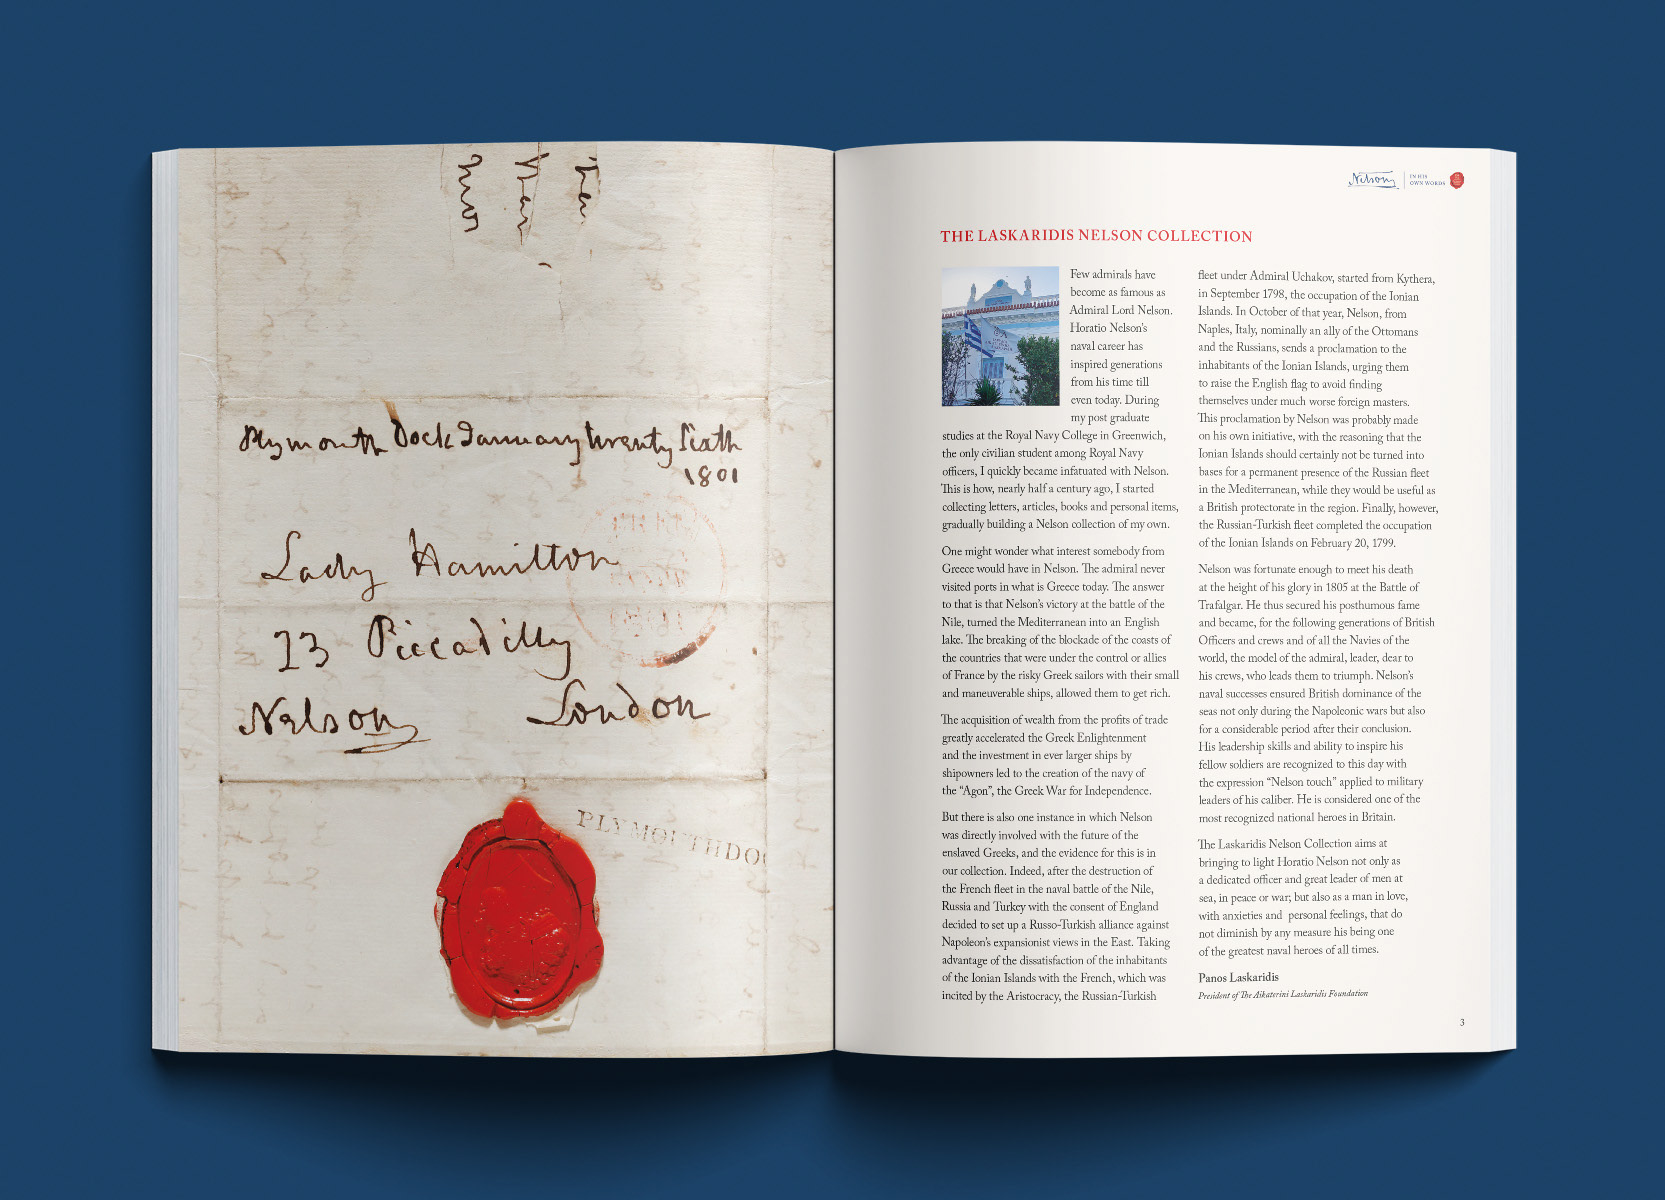 Plymouth Dock January twenty Sixth
1801
Lady Hamilton
23 Piccadilly
Nelson London
PLYMOUTH DO
Nelson IN HIS
OWN WORDS
THE LASKARIDIS NELSON COLLECTION
Few admirals have
become as famous as
Admiral Lord Nelson.
Horatio Nelson's
naval career has
inspired generations
from his time till
even today. During
my post graduate
studies at the Royal Navy College in Greenwich,
the only civilian student among Royal Navy
officers, I quickly became infatuated with Nelson.
This is how, nearly half a century ago, I started
collecting letters, articles, books and personal items,
gradually building a Nelson collection of my own.
One might wonder what interest somebody from
Greece would have in Nelson. The admiral never
visited ports in what is Greece today. The answer
to that is that Nelson's victory at the battle of the
Nile, turned the Mediterranean into an English
lake. The breaking of the blockade of the coasts of
the countries that were under the control or allies
of France by the risky Greek sailors with their small
and maneuverable ships, allowed them to get rich.
The acquisition of wealth from the profits of trade
greatly accelerated the Greek Enlightenment
and the investment in ever larger ships by
shipowners led to the creation of the navy of
the “Agon”, the Greek War for Independence.
But there is also one instance in which Nelson
was directly involved with the future of the
enslaved Greeks, and the evidence for this is in
our collection. Indeed, after the destruction of
the French fleet in the naval battle of the Nile,
Russia and Turkey with the consent of England
decided to set up a Russo-Turkish alliance against
Napoleon's expansionist views in the East. Taking
advantage of the dissatisfaction of the inhabitants
of the Ionian Islands with the French, which was
incited by the Aristocracy, the Russian-Turkish
fleet under Admiral Uchakov, started from Kythera,
in September 1798, the occupation of the Ionian
Islands. In October of that year, Nelson, from
Naples, Italy, nominally an ally of the Ottomans
and the Russians, sends a proclamation to the
inhabitants of the Ionian Islands, urging them
to raise the English flag to avoid finding
themselves under much worse foreign masters.
This proclamation by Nelson was probably made
on his own initiative, with the reasoning that the
Ionian Islands should certainly not be turned into
bases for a permanent presence of the Russian fleet
in the Mediterranean, while they would be useful as
a British protectorate in the region. Finally, however,
the Russian-Turkish fleet completed the occupation
of the Ionian Islands on February 20, 1799.
Nelson was fortunate enough to meet his death
at the height of his glory in 1805 at the Battle of
Trafalgar. He thus secured his posthumous fame
and became, for the following generations of British
Officers and crews and of all the Navies of the
world, the model of the admiral, leader, dear to
his crews, who leads them to triumph. Nelson's
naval successes ensured British dominance of the
seas not only during the Napoleonic wars but also
for a considerable period after their conclusion.
His leadership skills and ability to inspire his
fellow soldiers are recognized to this day with
the expression “Nelson touch” applied to military
leaders of his caliber. He is considered one of the
most recognized national heroes in Britain.
The Laskaridis Nelson Collection aims at
bringing to light Horatio Nelson not only as
a dedicated officer and great leader of men at
sea, in peace or war, but also as a man in love,
with anxieties and personal feelings, that do
not diminish by any measure his being one
of the greatest naval heroes of all times.
Panos Laskaridis
President of The Aikaterini Laskaridis Foundation
3